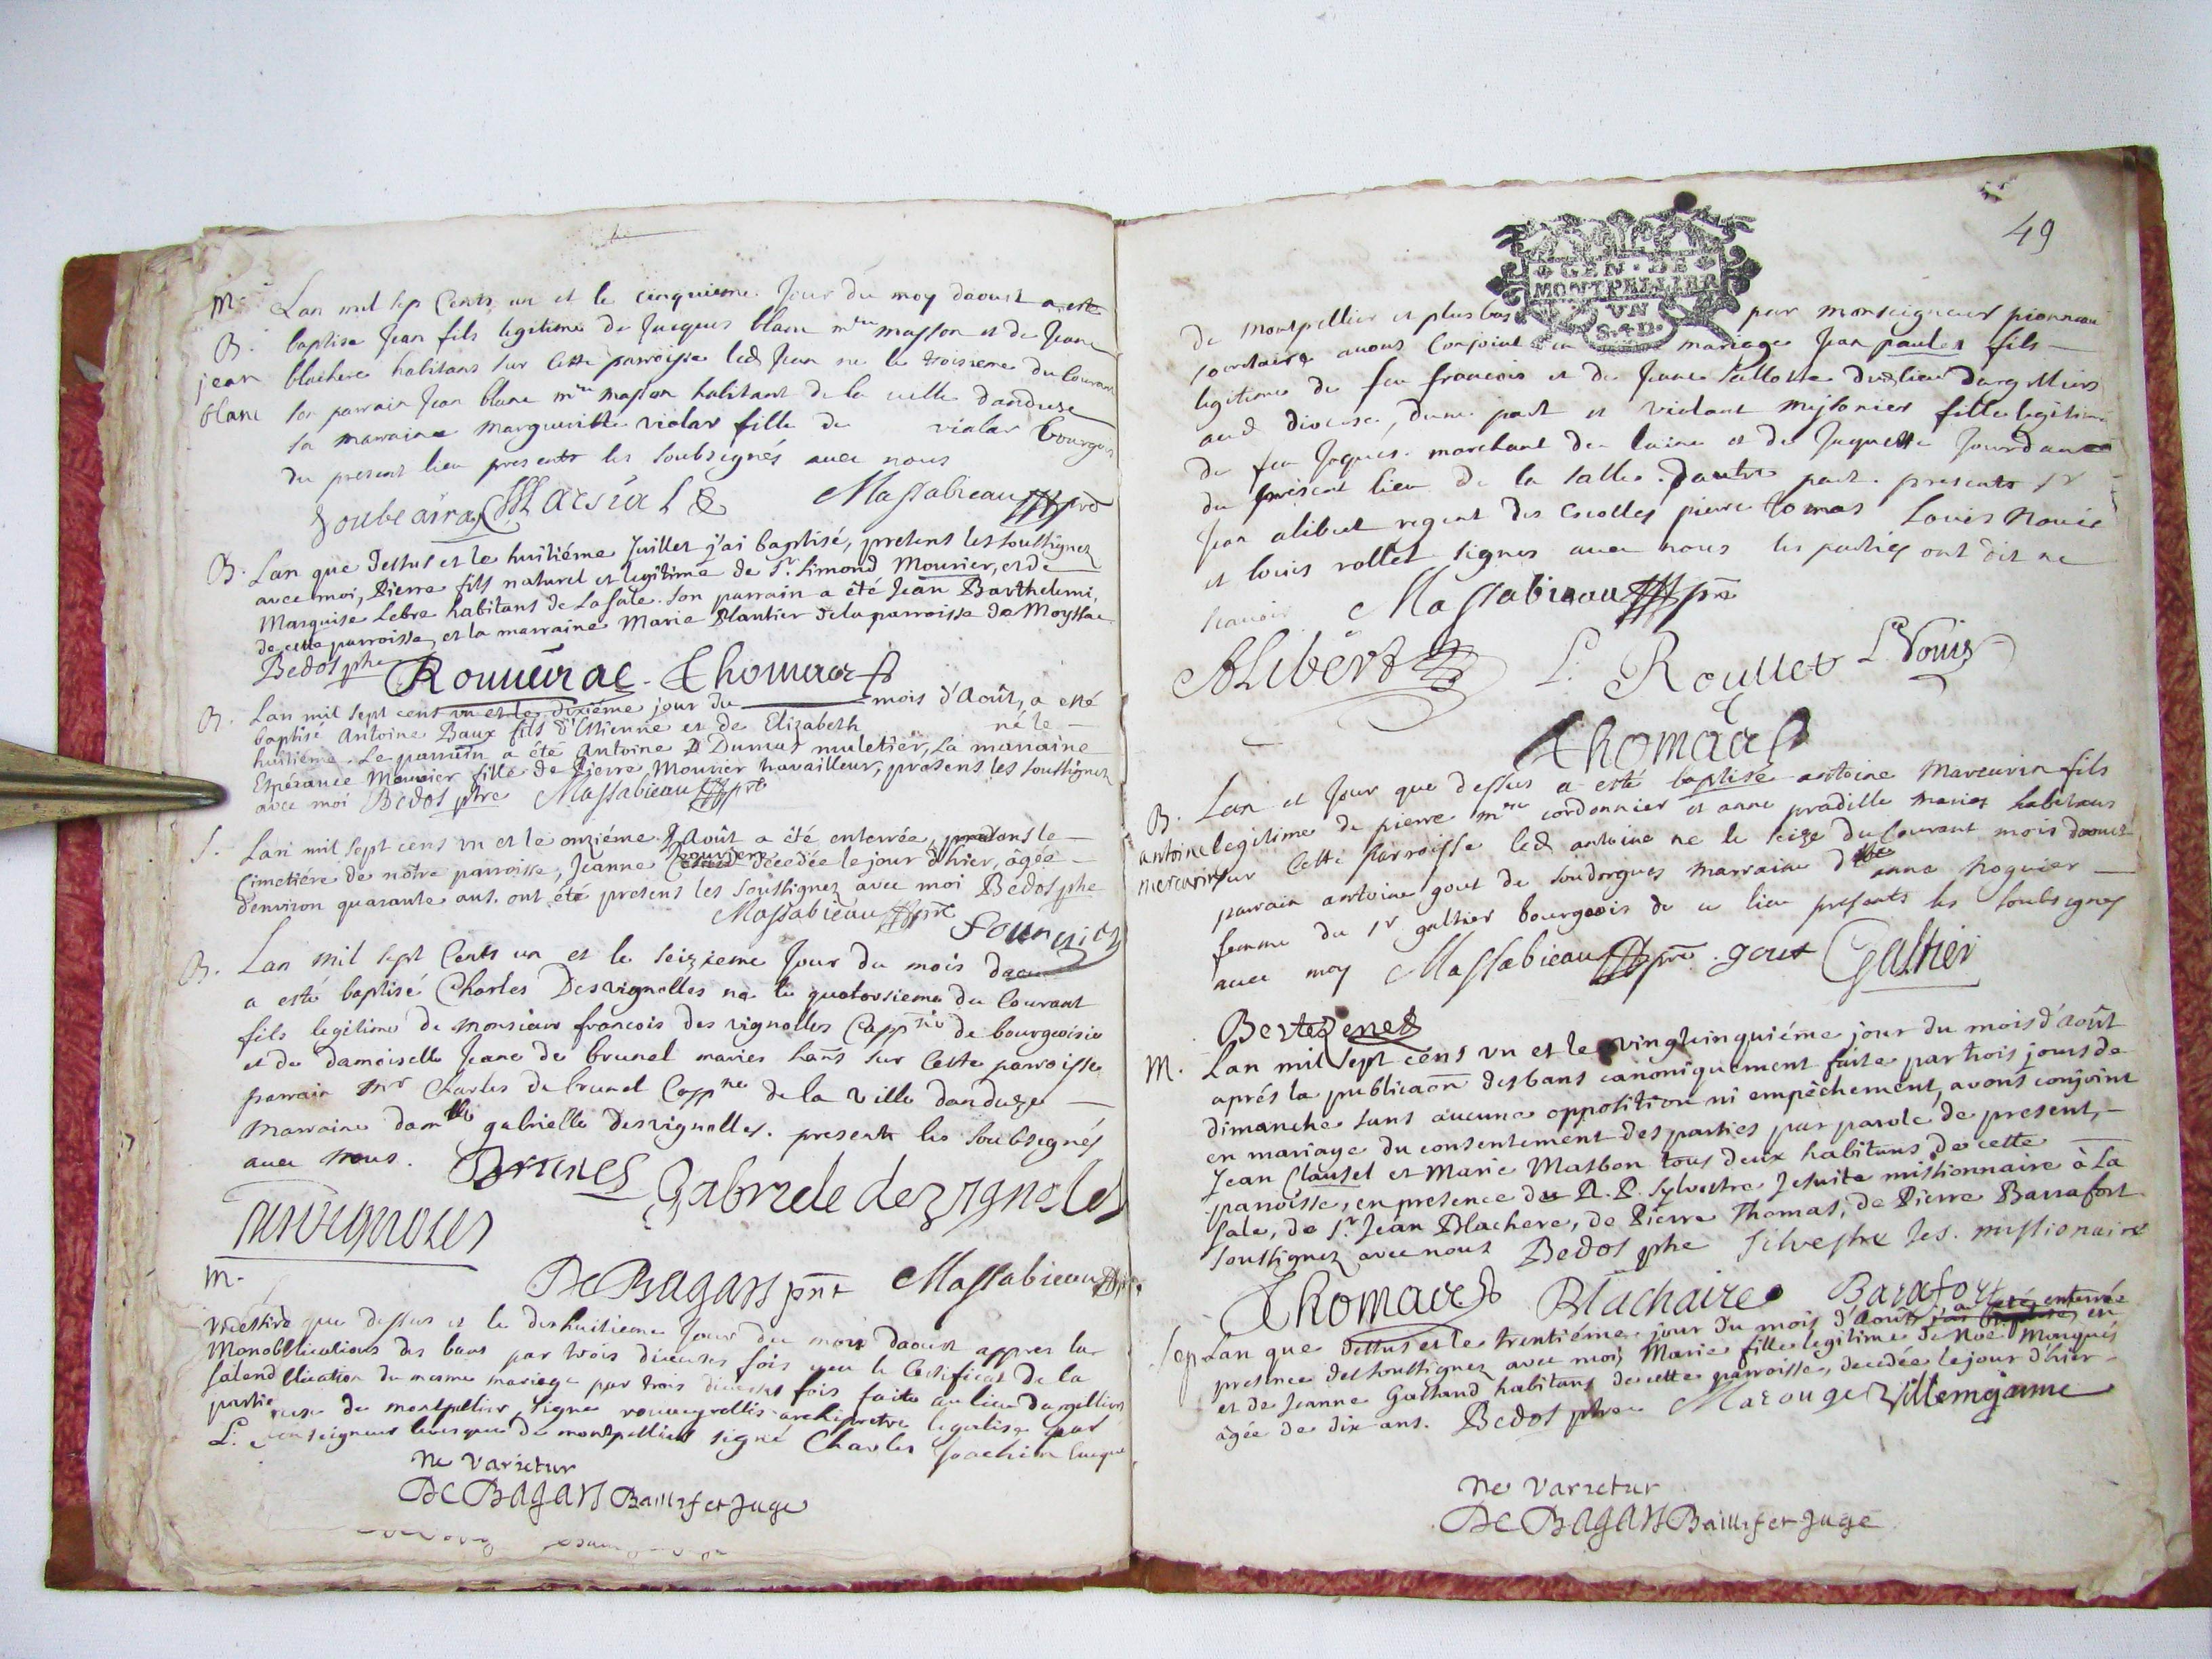 M.
Lan mil sep Cents un et le cinquieme Jour du moy daoust a este
B. baptise Jean fils legitime de Jacques blanc mtre masson et de Jeane
jean blachere habitans sur Cette parroisse led Jean ne le troisieme du Courant
blanc son parrain Jean blanc mtre masson habitant de la ville danduse
sa marraine margueritte violar fille de violar bourgois
du present lieu presents les soubsignés avec nous
Soubeiran Marsial Massabieau prê
B. Lan que dessus et le huitiéme Juillet j'ai baptisé, presens les soussignez
avec moi, Pierre fils naturel et legitime de Sr. Simond Mourier, et de
Marquise Lebre habitans de Lasale. Son parrain a été Jean Barthelemi,
de cette parroisse, et la marraine Marie Plantier de la parroisse de Moyssac
Bedos phe Rouveirac Thomas
B. Lan mil sept cens vn et le dixiéme jour du mois d'Août, a esté
baptisé Antoine Baux fils d'Estienne et de Elizabeth né le
huitiéme. Le parrain a été Antoine Dumas muletier, La marraine
Espérance Mourier fille de Pierre Mourier travailleur, presens les soussignez
avec moi Bedos phre Massabieau prê
S. Lan mil sept cens vn et le onziéme Août a été enterrée, dans le
Cimetiére de nôtre parroisse, Jeanne décedée le jour d'hier, âgée
d'environ quarante ans. ont été presens les soussignez avec moi Bedos phe
Massabieau prê
B. Lan mil sept Cents un et le seizieme Jour du mois daoust
a esté baptisé Charles Desvignolles ne le quatorsieme du Courant
fils legitime de monsieur francois des vignolles Cappne de bourgeoisie
et de damoiselle Jeane de brunel maries hans sur Cette parroisse
parrain mr Charles de brunel Cappne de la ville danduze
marraine damlle gabrielle desvignolles. presents les soubsignés
avec nous. Brunel Gabriele dezvignoles
M.
De Bagars pnt Massabieau prê
que dessus et le dixhuitieme Jour du mois daoust appres la
publications des bans par trois diverses fois veu le Certificat de la
publication du mesme mariage par trois diverses fois faite au lieu dargilliers
diocese de montpellier, signé archipretre legalise par
monseigneur levesque de montpellier signé Charles Joachim Eveque
Ne varietur
De Bagars Baillif et Juge
49
GEN. DE
MONTPELLIER
VN
S. 4 D.
de montpellier et plus bas par monseigneur pionneau
secretaire avons Conjoint en mariage Jean paules fils
legitime de feu francois et de Jeane du lieu dargilliers
aud diocese, dune part et violant meysonier fille legitime
de feu Jaques marchant de laine et de Juquette Jourdane
du present lieu de la salle dautre part. presents sr
Jean alibert regent des escolles pierre tomas Louis Novis
et louis rollet signes avec nous les parties ont dit ne
scavoir Massabieau prê
ALibert L. Roullet L. Novis
Thomas
B. Lan et Jour que dessus a esté baptisé antoine mercurin fils
antoine legitime de pierre mtre cordonnier et anne pradille maries habitans
mercurin sur Cette parroisse led antoine ne le seize du Courant mois daoust
parrain antoine gout de soudorgues marraine dlle anne noguier
femme du sr galtier bourgeois de ce lieu presents les soubsignes
avec moy Massabieau prê gout Galtier
M. Lan mil sept cens vn et le vingtcinquiéme jour du mois d'août
aprés la publicaõn des bans canoniquement faite par trois jours de
dimanche sans aucune opposition ni empêchement, avons conjoint
en mariage du consentement des parties par parole de present,
Jean Clausel et Marie Masbon tous deux habitans de cette
parroisse, en presence du R. P. Sylvestre Jesuite missionnaire à La
Sale, de Sr. Jean Blachere, de Pierre Thomas, de Pierre Barrafort
soussignez avec nous Bedos phe Silvestre Jes. missionaire
Thomas Blachaire Barafort
Sep Lan que dessus et le trentiéme jour du mois d'Août a été enterrée en
presence des soussignez avec moi, Marie fille legitime de Noé Marqués
et de Jeanne Gassand habitans de cette parroisse, decedée le jour d'hier
âgée de dix ans. Bedos phre Marouge Villemejanne
Ne varietur
De Bagars Baillif et Juge